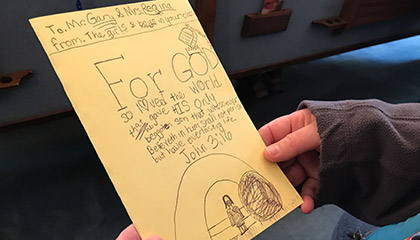 To: Mr. Gary & Mrs. Regina
from: The girls & boys in your class
For GOD
so loved the world
that gave HIS only
son that whosoever
Believeth in him shall not perish
but have everlasting life
John 3:16